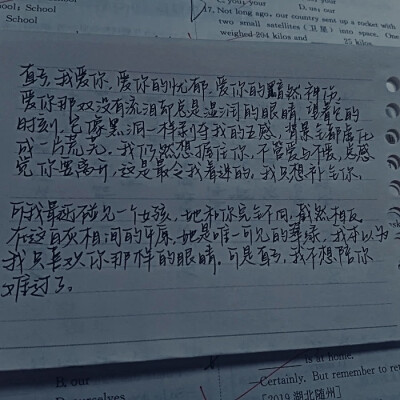 School: School
C. your, your
D. us; our
17. Not long ago, our country sent up a rocket with
two small satellites (卫星) into space. One
weighed 204 kilos and 25 kilos
我爱你,爱你的忧郁,爱你的黯然神伤,
爱你那双没有流泪却总是湿润的眼睛,望着它的
时刻,它像黑洞一样剥夺我的五感,背景全都虚化
成一片荒芜。我仍然想握住你,不管爱与不爱,总感
觉你要离开,这是最令我着迷的,我只想补全你。
可我最近碰见一个女孩,她和你完全不同,截然相反
在这百灰相间的平原,她是唯一可见的翠绿,我本以为
我只喜欢你那样的眼睛,可是,我不想陪你
难过了。
B. our
is at home.
—Certainly. But remember to
[2019 湖北随州]